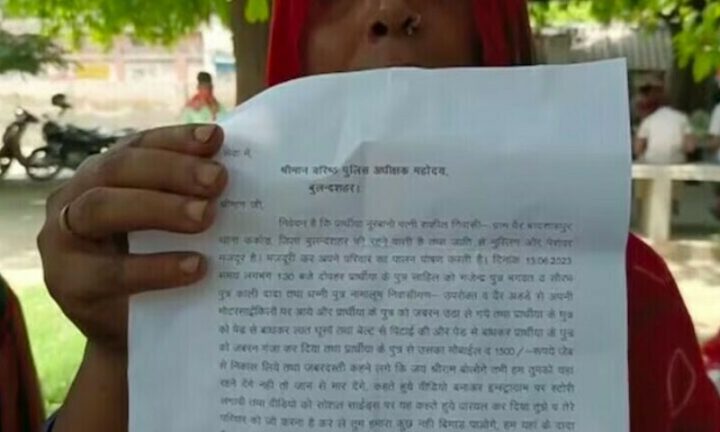 सेवा में,
श्रीमान वरिष्ठ पुलिस अधीक्षक महोदय,
बुलन्दशहर।
श्रीमान जी,
निवेदन है कि प्रार्थीया नूरबानो पत्नी शकील निवासी– ग्राम वैर बादशाहपुर
थाना ककोड़, जिला बुलन्दशहर की रहने वाली है तथा जाति से मुस्लिम और पेशेवर
मजदूर है। मजदूरी कर अपने परिवार का पालन पोषण करती है। दिनांक 13.06.2023
समय लगभग 1:30 बजे दोपहर प्रार्थीया के पुत्र साहिल को गजेन्द्र पुत्र भगवत व सौरभ
पुत्र काली दादा तथा धन्नी पुत्र नामालूम निवासीगण– उपरोक्त व वैर अड्डे से अपनी
मोटरसाईकिलों पर आये और प्रार्थीया के पुत्र को जबरन उठा ले गये तथा प्रार्थीया के पुत्र
को पेड से बाधकर लात घूसों तथा बेल्ट से पिटाई की और पेड मे बाधकर प्रार्थीया के पुत्र
को जबरन गंजा कर दिया तथा प्रार्थीया के पुत्र से उसका मोबाईल व 1500/–रूपये जेब
से निकाल लिये तथा जबरदस्ती कहने लगे कि जय श्रीराम बोलोगे तभी हम तुमको यहा
रहने देगे नही तो जान से मार देगे, कहते हुये वीडियो बनाकर इन्स्ट्राग्राम पर स्टोरी
लगायी तथा वीडियो को सोशल साईड्स पर यह कहते हुये वायरल कर दिया तुझे व तेरे
परिवार को जो करना है कर ले तुम हमारा कुछ नही बिगाड पाओगे, हम यहां के दादा